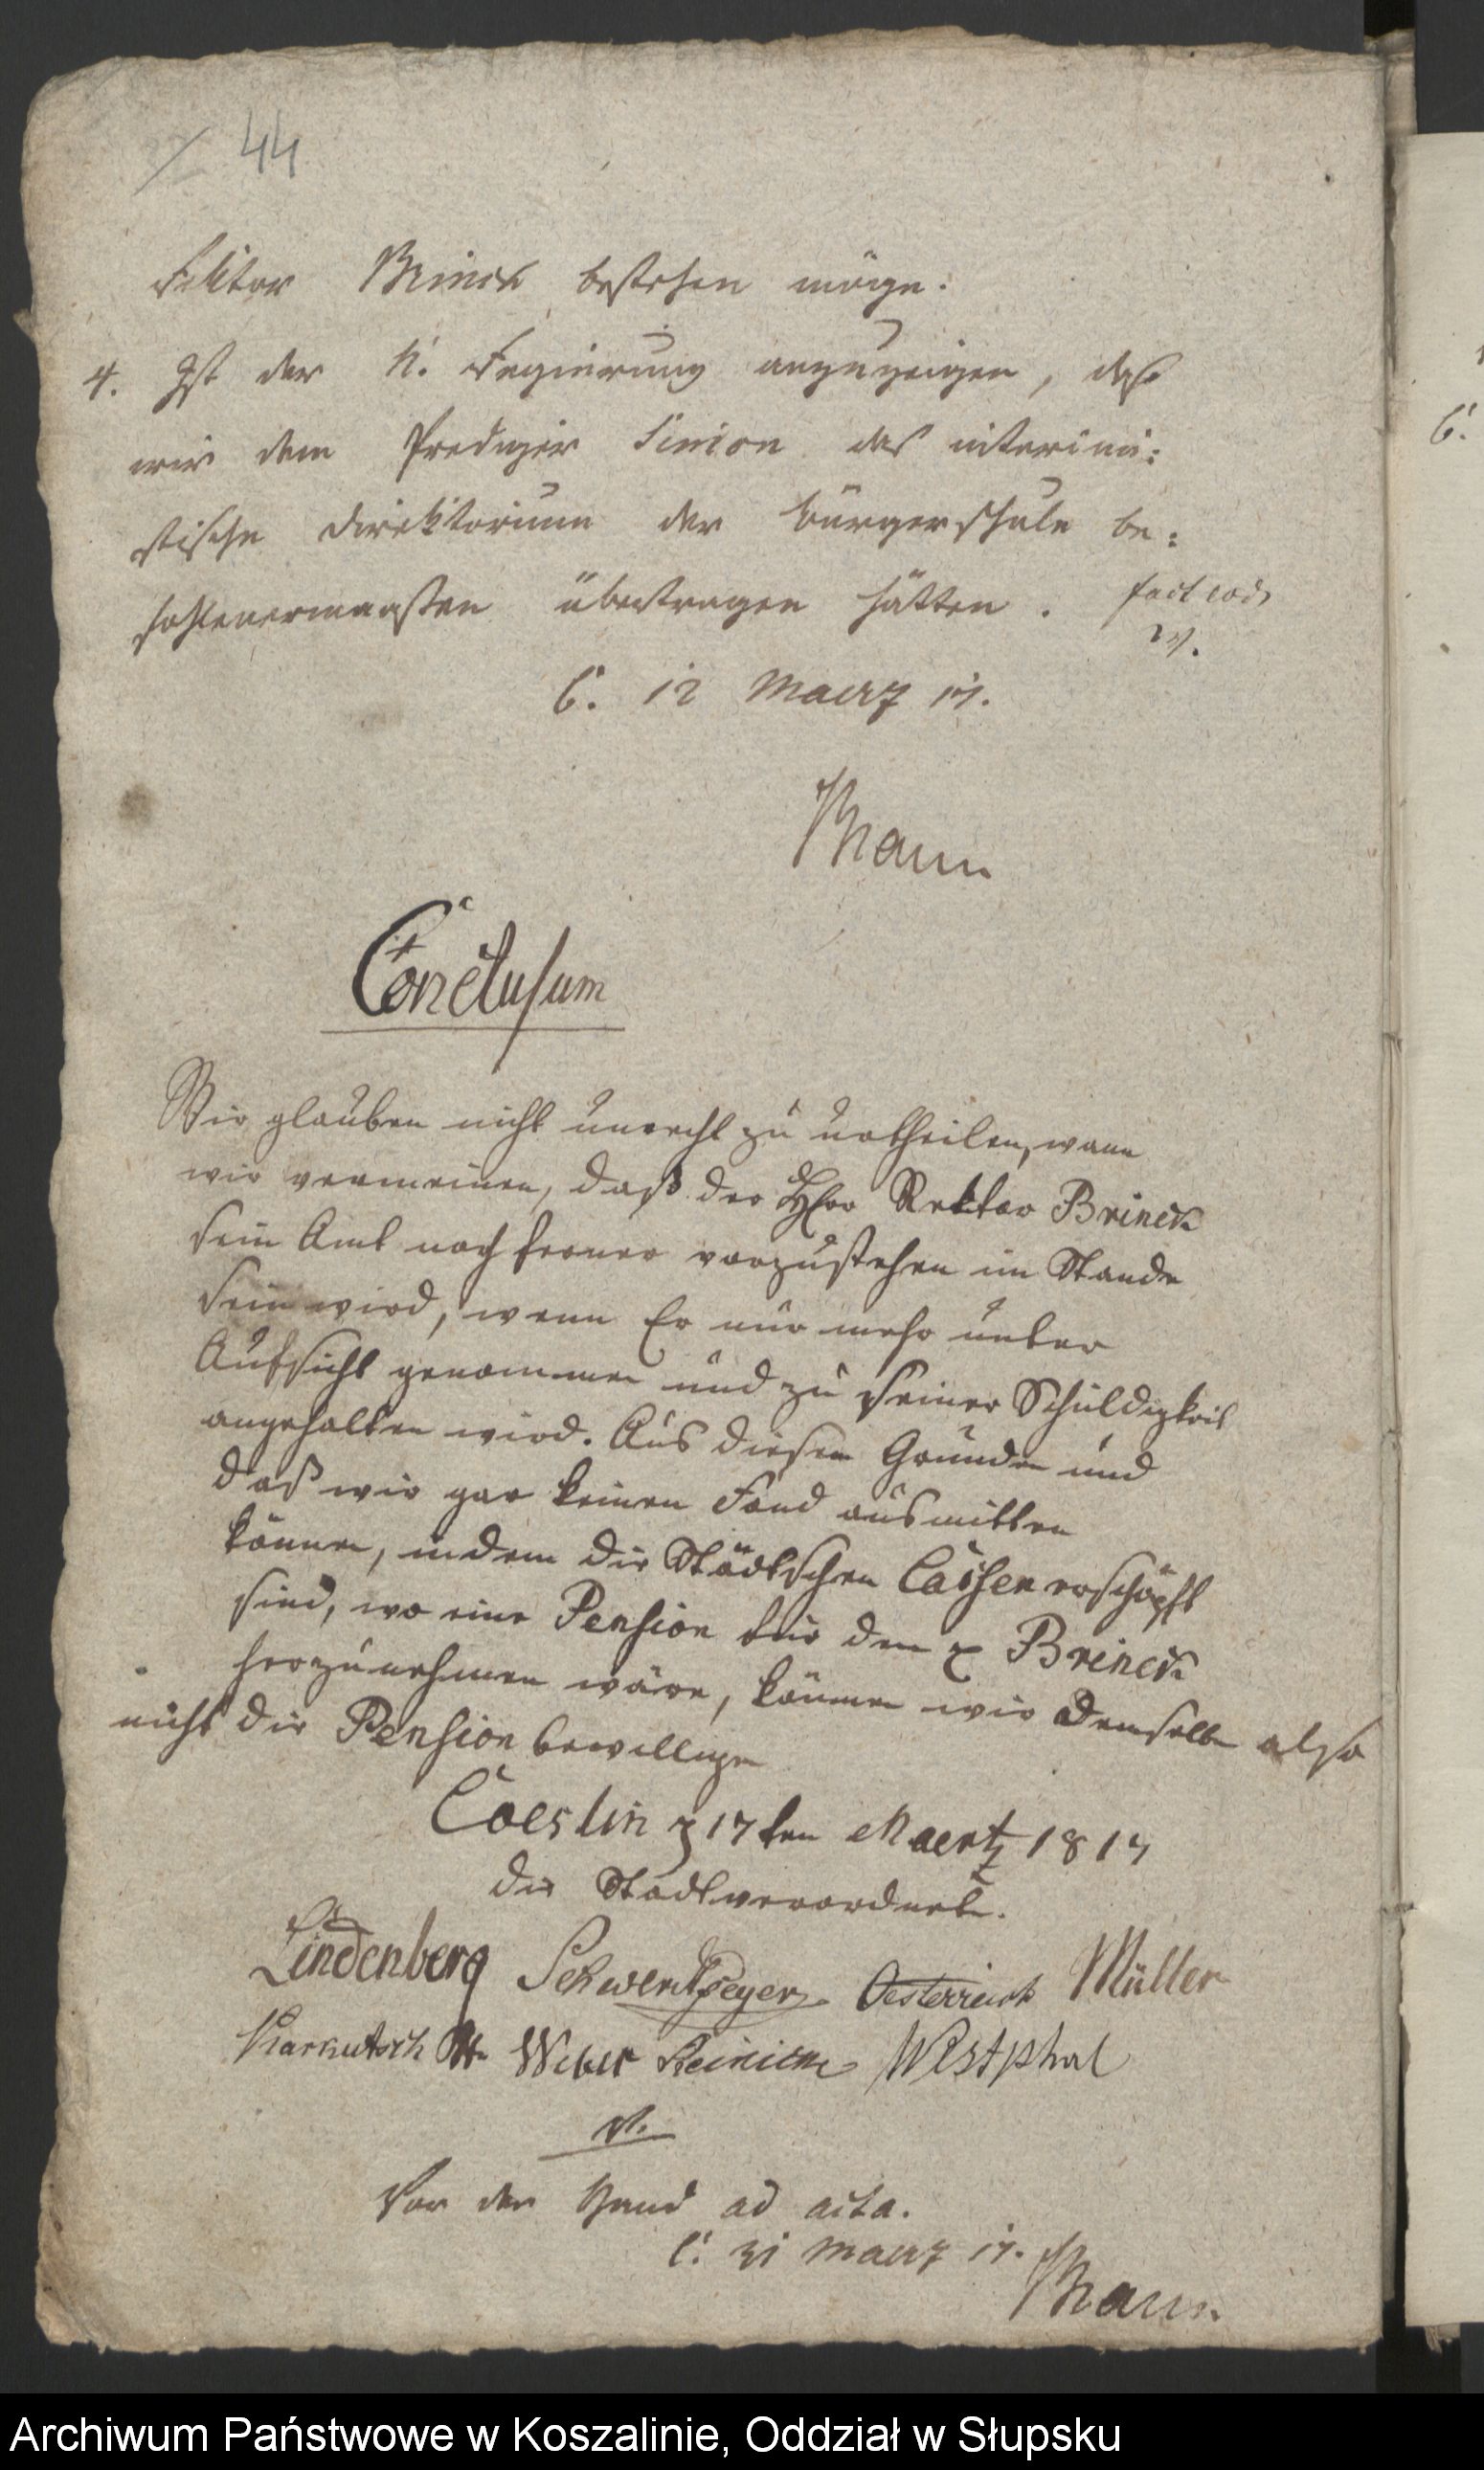 44
Rektor Brinck bestehen möge.
4. Ist der K. Regierung anzuzeigen, daß
wir dem Prediger Simon das interimi:
stische Direktorium der Bürgerschule be:
fohlenermaaßen übertragen hätten. fact eod.
C. 12 Maerz 17.
Braun
Conclusum
Wir glauben nicht unrecht zu urtheilen, wann
wir vermeinen, daß der Herr Rektor Brinck
sein Amt noch ferner vorzustehen im Stande
sein wird, wenn Er nur mehr unter
Aufsicht genommen und zu seiner Schuldigkeit
angehalten wird. Aus diesem Grunde und
daß wir gar keinen Fond ausmitteln
können, indem die Städtschen Cassen erschöpft
sind, wo eine Pension für den p Brinck
herzunehmen wäre, können wir demselben also
nicht die Pension bewilligen
Coeslin d 17ten Maertz 1817
die Stadtverordneten.
Lindenberg Schwerdtfeger Oesterreich Müller
Karkutsch Weber Reinicke Westphal
V.
Vor der Hand ad acta.
C. 31 Maerz 17.
Braun
6.
Archiwum Państwowe w Koszalinie, Oddział w Słupsku